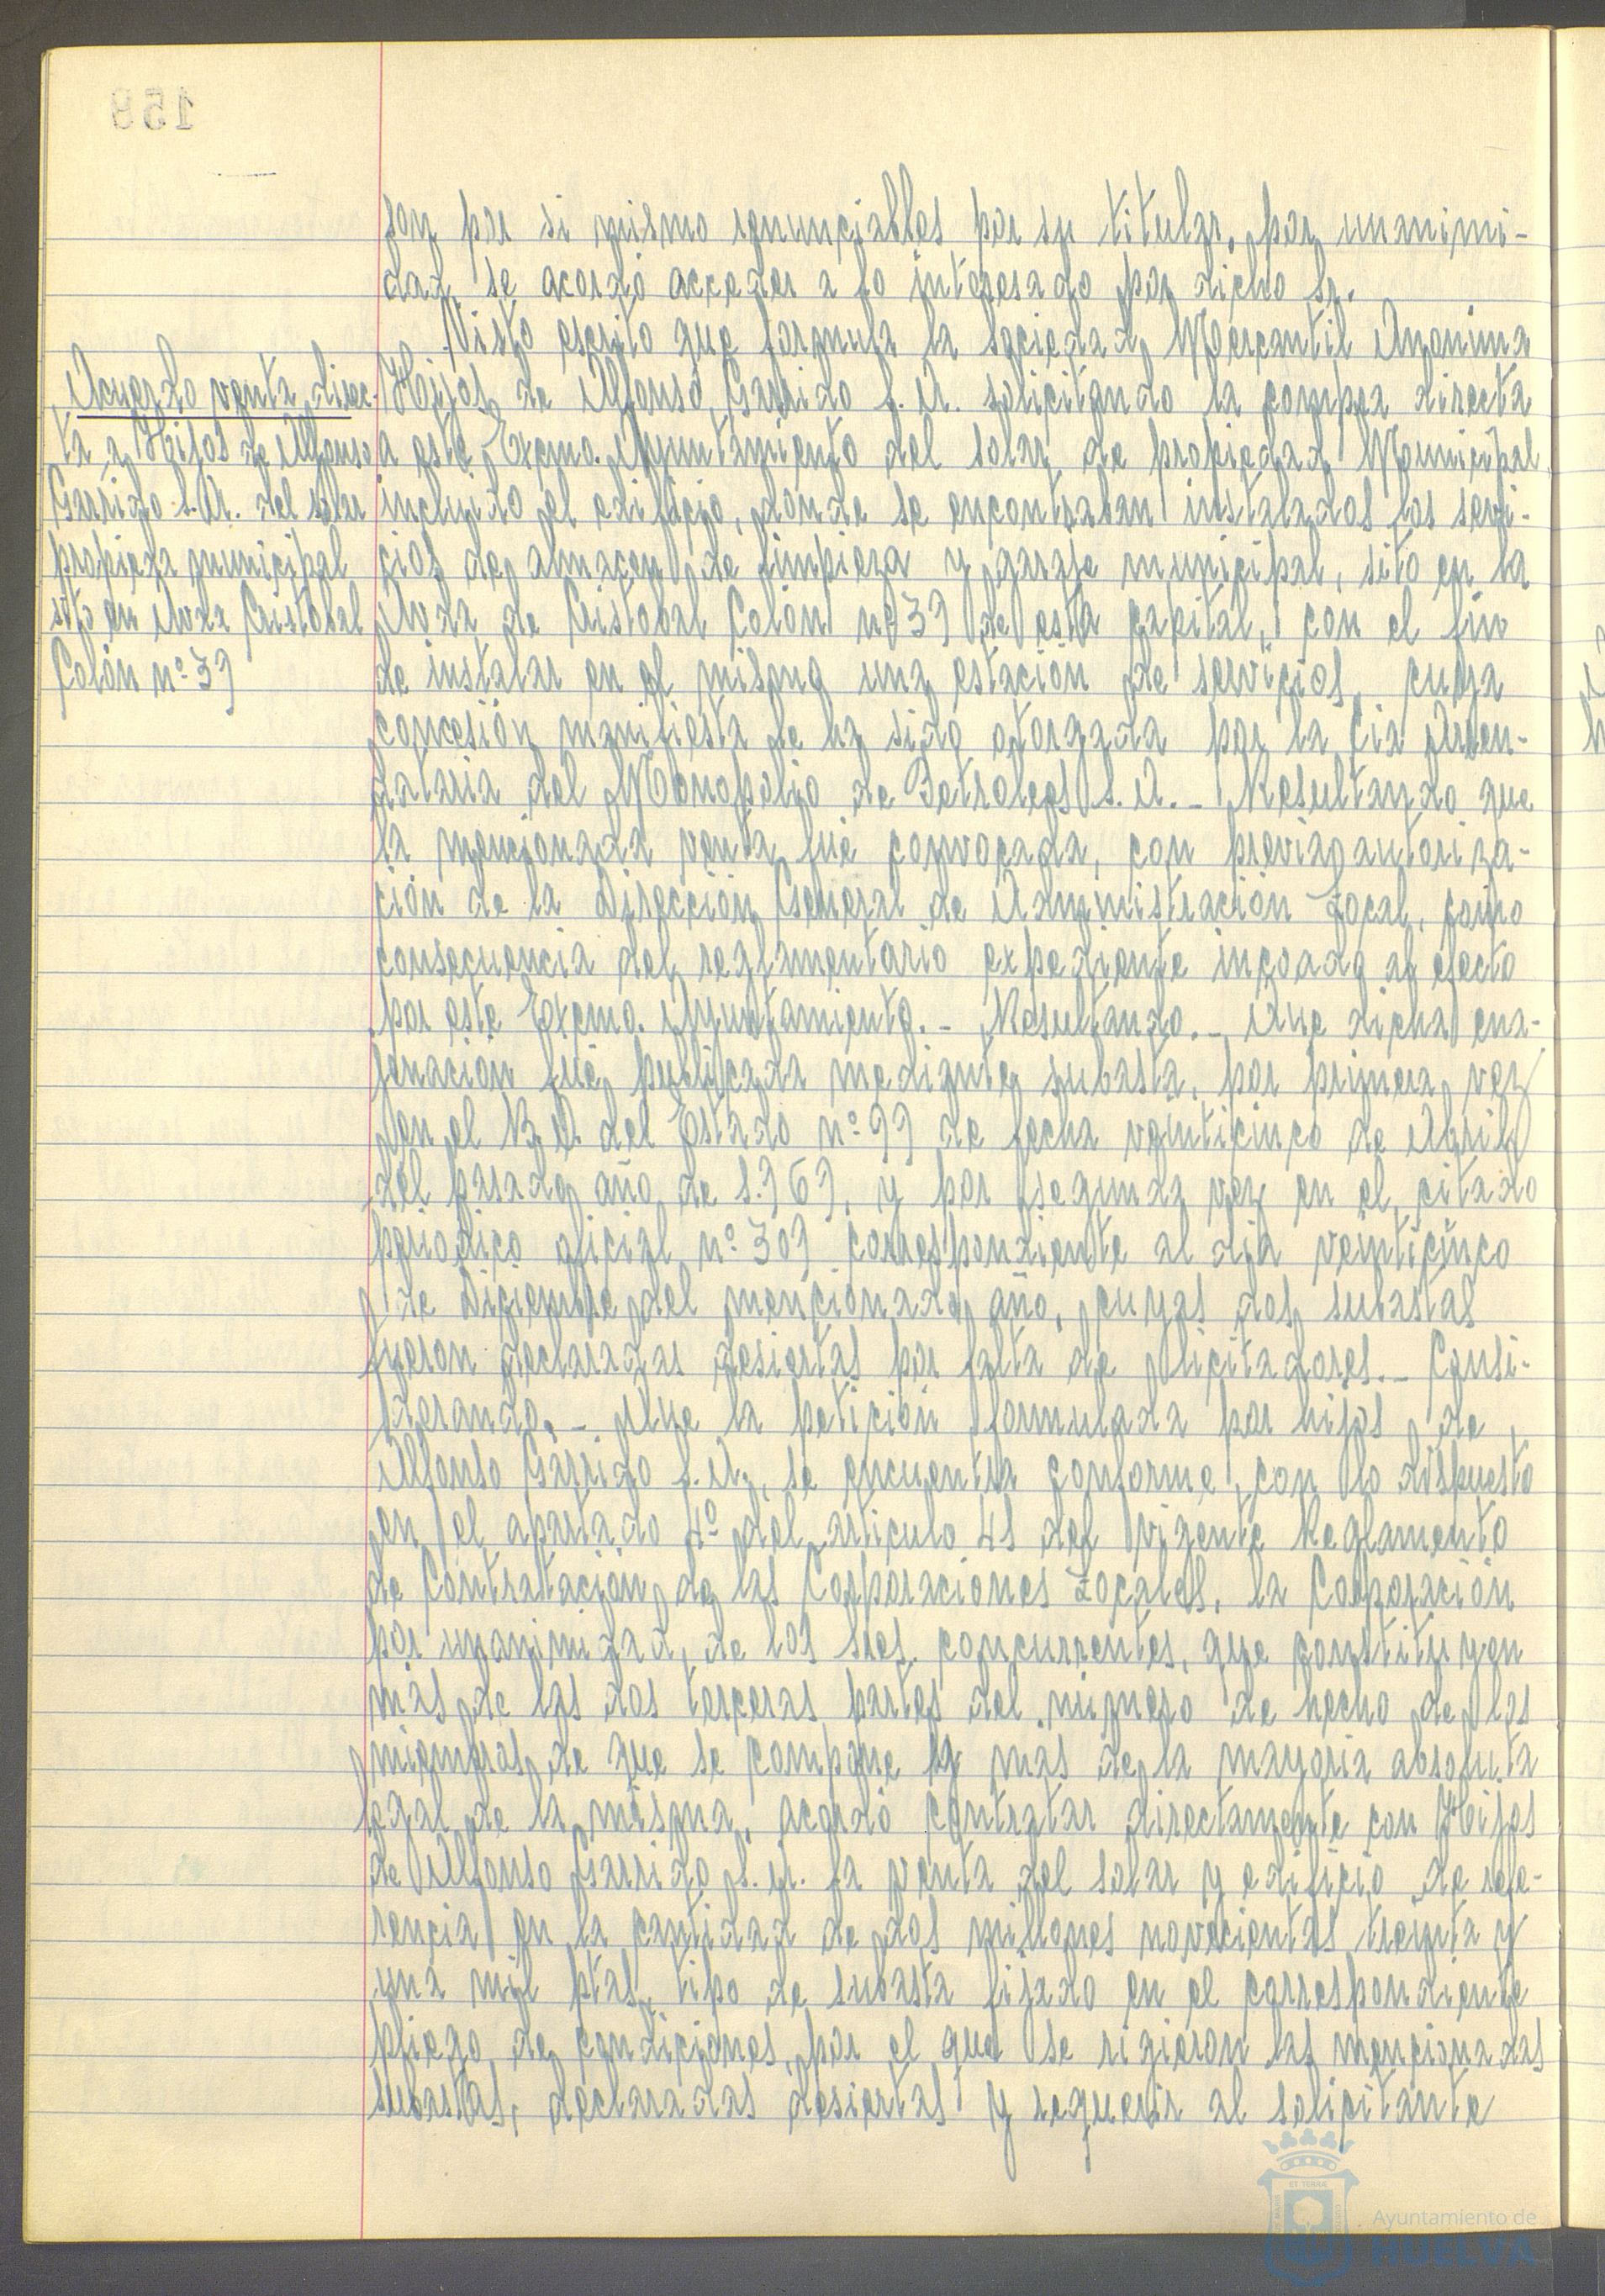 son por si mismo renunciables por su titular, por unanimi-
dad, se acordó acceder a lo interesado por dicho Sr.
Visto escrito que formula la sociedad Mercantil Anonima
Hijos de Alfonso Garrido S.A. solicitando la compra directa
a este Excmo. Ayuntamiento del solar de propiedad Municipal,
incluido el edificio, donde se encontraban instalados los servi-
cios de almacen de limpieza y garaje municipal, sito en la
Avda de Cristobal Colón nº 39 de esta capital, con el fin
de instalar en el mismo una estación de servicios, cuya
concesión manifiesta le ha sido otorgada por la Cia Arren-
dataria del Monopolio de Petroleos S.A.- Resultando que
la mencionada venta fué convocada, con previa autoriza-
ción de la Dirección General de Administración Local, como
consecuencia del reglamentario expediente incoado al efecto
por este Excmo. Ayuntamiento.- Resultando.- Que dicha ena-
jenación fué publicada mediante subasta, por primera vez
en el B.O. del Estado nº 99 de fecha veinticinco de Abril
del pasado año de 1.969, y por segunda vez en el citado
periodico oficial nº 309 correspondiente al dia veinticinco
de Diciembre del mencionado año, cuyas dos subastas
fueron declaradas desiertas por falta de licitadores.- Consi-
derando.- Que la petición formulada por hijos de
Alfonso Garrido S.A., se encuentra conforme, con lo dispuesto
en el apartado 4º del articulo 41 del vigente Reglamento
de Contratación de las Corporaciones Locales, la Corporación
por unanimidad, de los sres. concurrentes, que constituyen
más de las dos terceras partes del número de hecho de los
miembros de que se compone y más de la mayoria absoluta
legal de la misma, acordó contratar directamente con Hijos
de Alfonso Garrido S.A. la venta del solar y edificio de refe-
rencia en la cantidad de dos millones novecientas treinta y
una mil ptas, tipo de subasta fijado en el correspondiente
pliego de condiciones, por el que se rigieron las mencionadas
subastas, declaradas desiertas y requerir al solicitante
Acuerdo venta direc-
ta a Hijos de Alfonso
Garrido S.A. del solar
propieda municipal
sito en Avda Cristobal
Colón nº 39
159
Ayuntamiento de
HUELVA